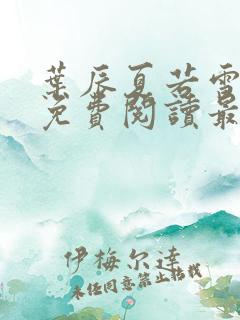 葉辰夏若雪
免費閱讀最
伊梅尔達
未经同意禁止转载